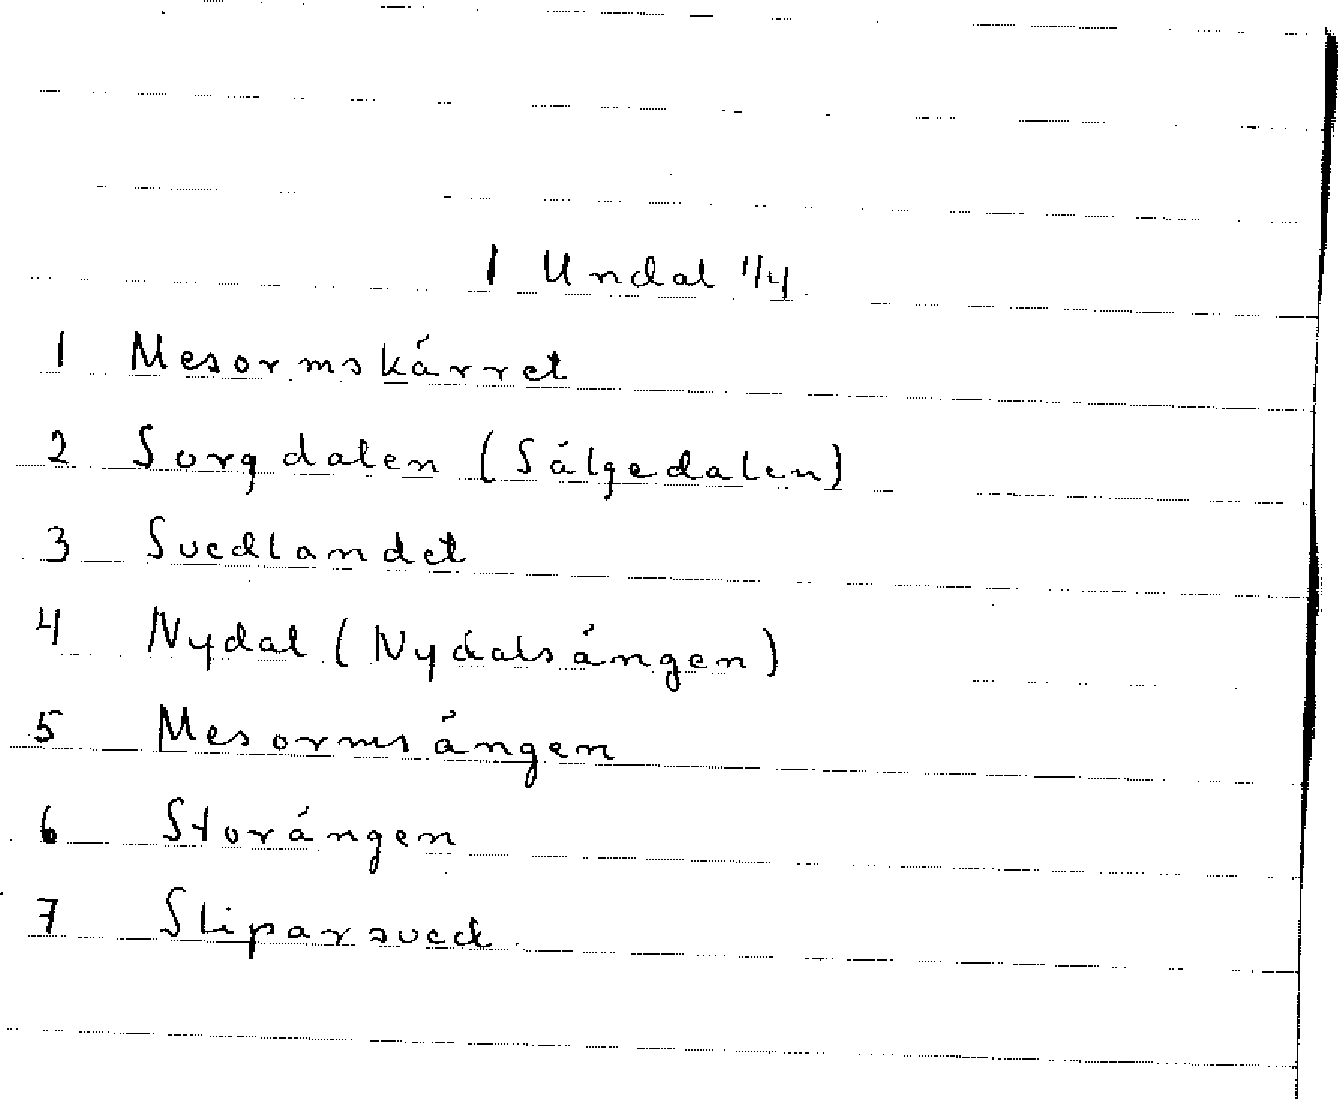 1 Undal 1/4
1 Mesormskärret
2 Sorgdalen (Sälgedalen)
3 Svedlandet
4 Nydal (Nydalsängen)
5 Mesormsängen
6 Storängen
7 Sliparsved